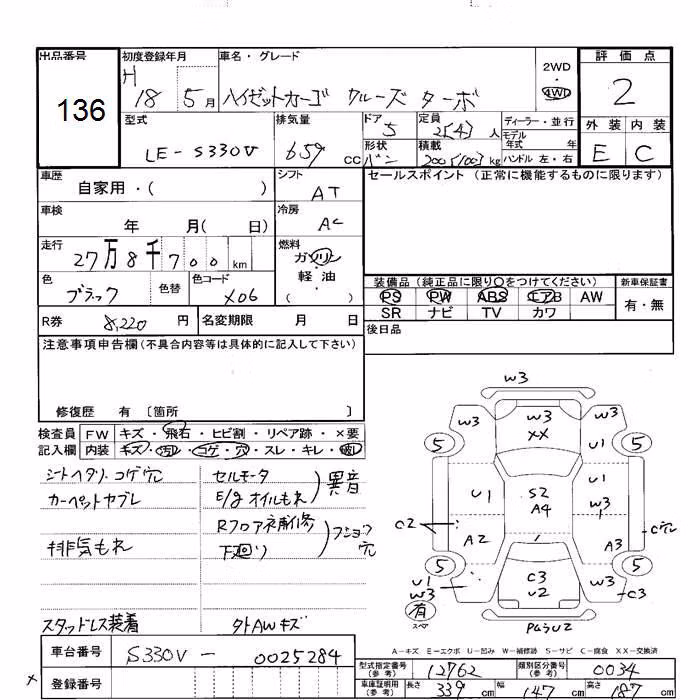 出品番号
136
初度登録年月
H
18 5月
車名・グレード
ハイゼットカーゴ クルーズ ターボ
2WD
・
4WD
評価点
2
外装 内装
E C
型式
LE-S330V
排気量
659 cc
ドア
5
形状
バン
定員
2(4)人
積載
200(100)kg
ディーラー・並行
モデル
年式 年
ハンドル 左・右
車歴
自家用・( )
シフト
AT
車検
年 月( 日)
冷房
AC
走行
27万8千700km
燃料
ガソリン
・
軽油
( )
色
ブラック
色替
色コード
X06
R券 8,220円
名変期限 月 日
セールスポイント(正常に機能するものに限ります)
装備品(純正品に限り○をつけてください)
PS PW ABS エアB AW
SR ナビ TV カワ
新車保証書
有・無
後日品
注意事項申告欄(不具合内容等は具体的に記入して下さい)
修復歴 有〔箇所 〕
検査員
記入欄
FW キズ・飛石・ヒビ割・リペア跡・×要
内装 キズ・汚レ・コゲ・穴・スレ・キレ・破レ
シートヘタリ・コゲ穴
カーペットヤブレ
排気もれ
スタッドレス装着
セルモータ
E/g オイルもれ
異音
Rフロア補修
下廻り
フショク穴
外AWキズ
W3
W3 W3 W3
XX
5 5
U1
U1 S2 W3
A4
C2 A2 A3 C穴
5 5
U1
W3 C3 W3 C3
U2
有
スペア
A-キズ E-エクボ U-凹み W-補修跡 S-サビ C-腐食 XX-交換済
車台番号
S330V-0025284
登録番号
×
型式指定番号
(参考)
12762
類別区分番号
(参考)
0034
車庫証明用
(参考)
長さ 339cm 幅 147cm 高さ 187cm